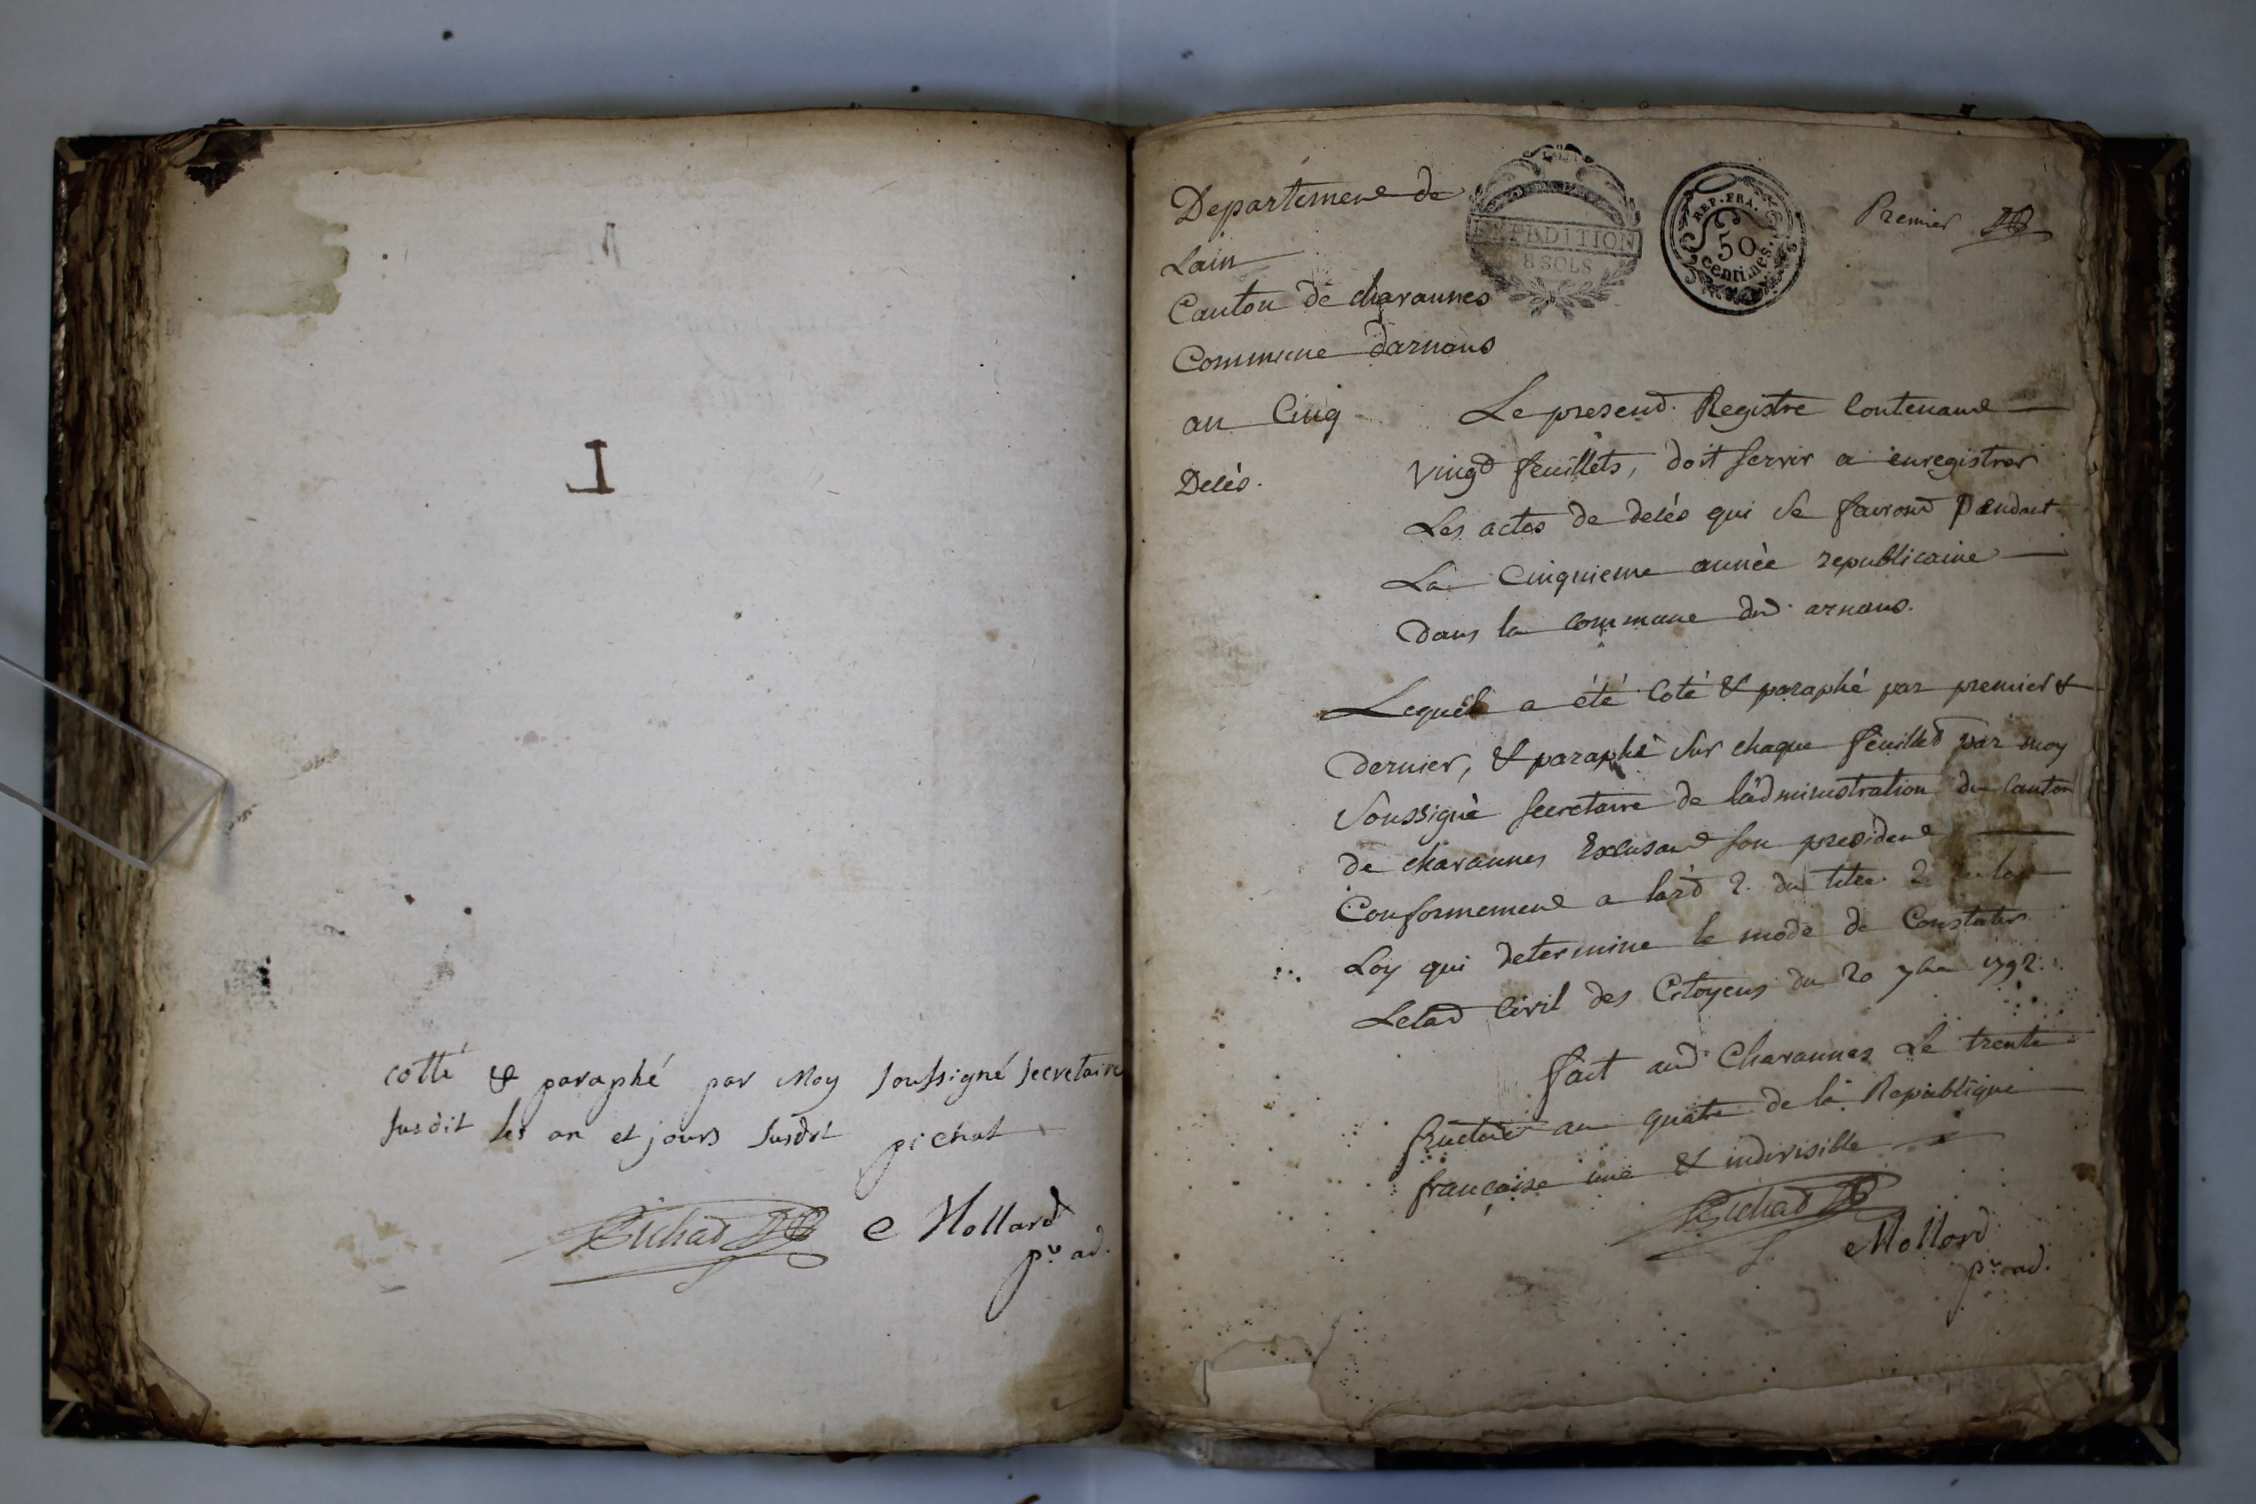 cotté & paraphé par Moy soussigné secretaire
susdit les an et jours susdit pichat
Pichad
e Mollard
pr. ad.
Departement de
Lain
Canton de chavannes
Commune darnans
an Cinq
Delés.
EXPEDITION
8 SOLS
REP. FRA.
50
centimes.
Premier
Le present Registre Contenant
vingt feuillets, doit servir a enregistrer
Les actes de delés qui se fairont Pendant
La Cinquieme année republicaine
dans la commune dud. arnans.
Lequel a été Coté & paraphé par premier &
dernier, & paraphé sur chaque feuilled par moy
soussigné secretaire de l'administration du Canton
de chavannes Excusant son president
Conformement a lard 2. du titre 2 de la
Loy qui determine le mode de Constater
Letad Civil des Citoyens du 20 7bre 1792.
fait aud Chavannes Le trente
fructidor an quatre de la Republique
francaise une & indivisible
Pichad
e Mollard
pr. ad.